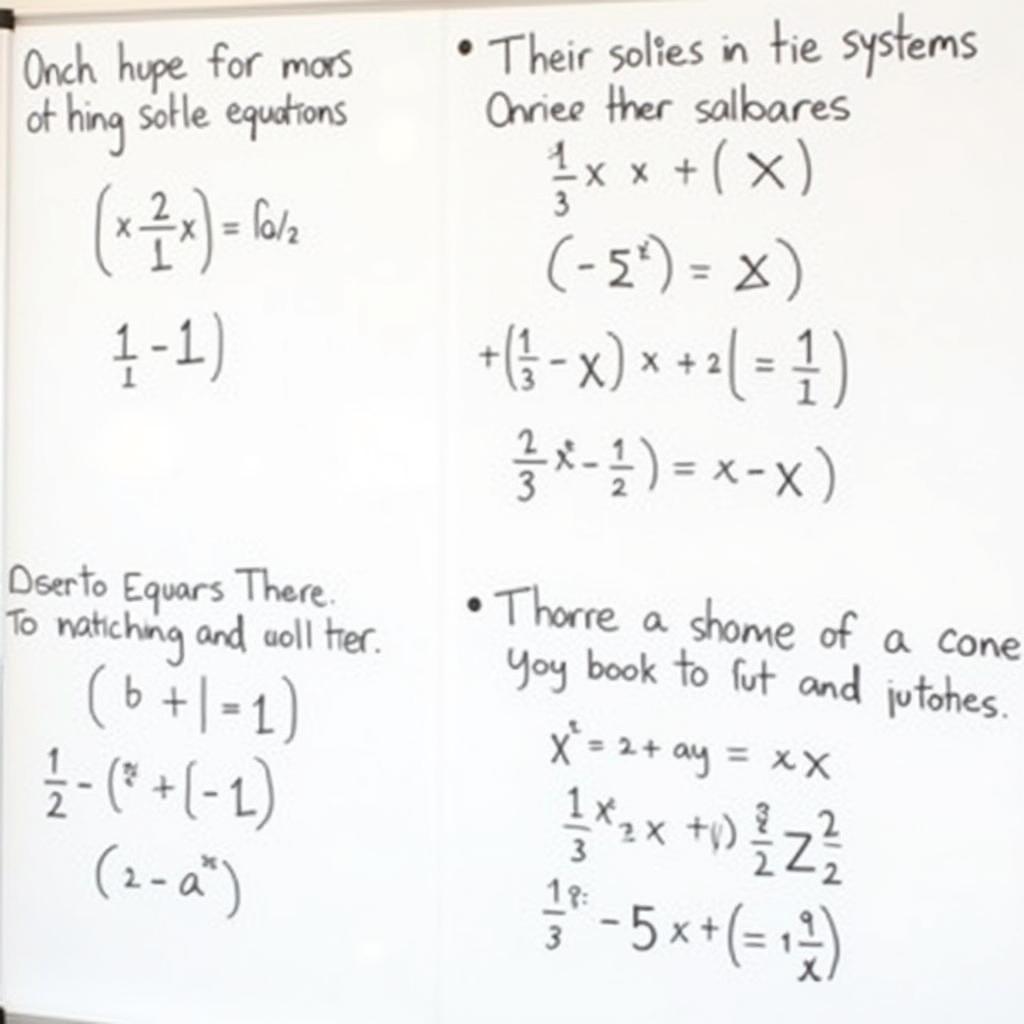 Onch hupe for mors
ot hing sotle equations
(x 2/1 x) = la/2
1/1 - 1)
• Their solies in tie systems
Onriee ther salbares
1/3 x x + ( X )
(- 5ˣ) = X )
+(1/3 - X) x + 2( = 1/1 )
2/3 xˣ - 1/2 ) = x - X )
Dserto Equars There.
To natiching and uoll tier.
( b + | = 1 )
1/2 - ( + (- 1)
(2 - aˣ)
• Thorre a shome of a cone
Yoy book to fut and jutohes.
X² = 2 + ay = x X
1/3 xˣ 2 x + ) /2 Z 2/2
1/3 - 5 x + (= 1 9/x)